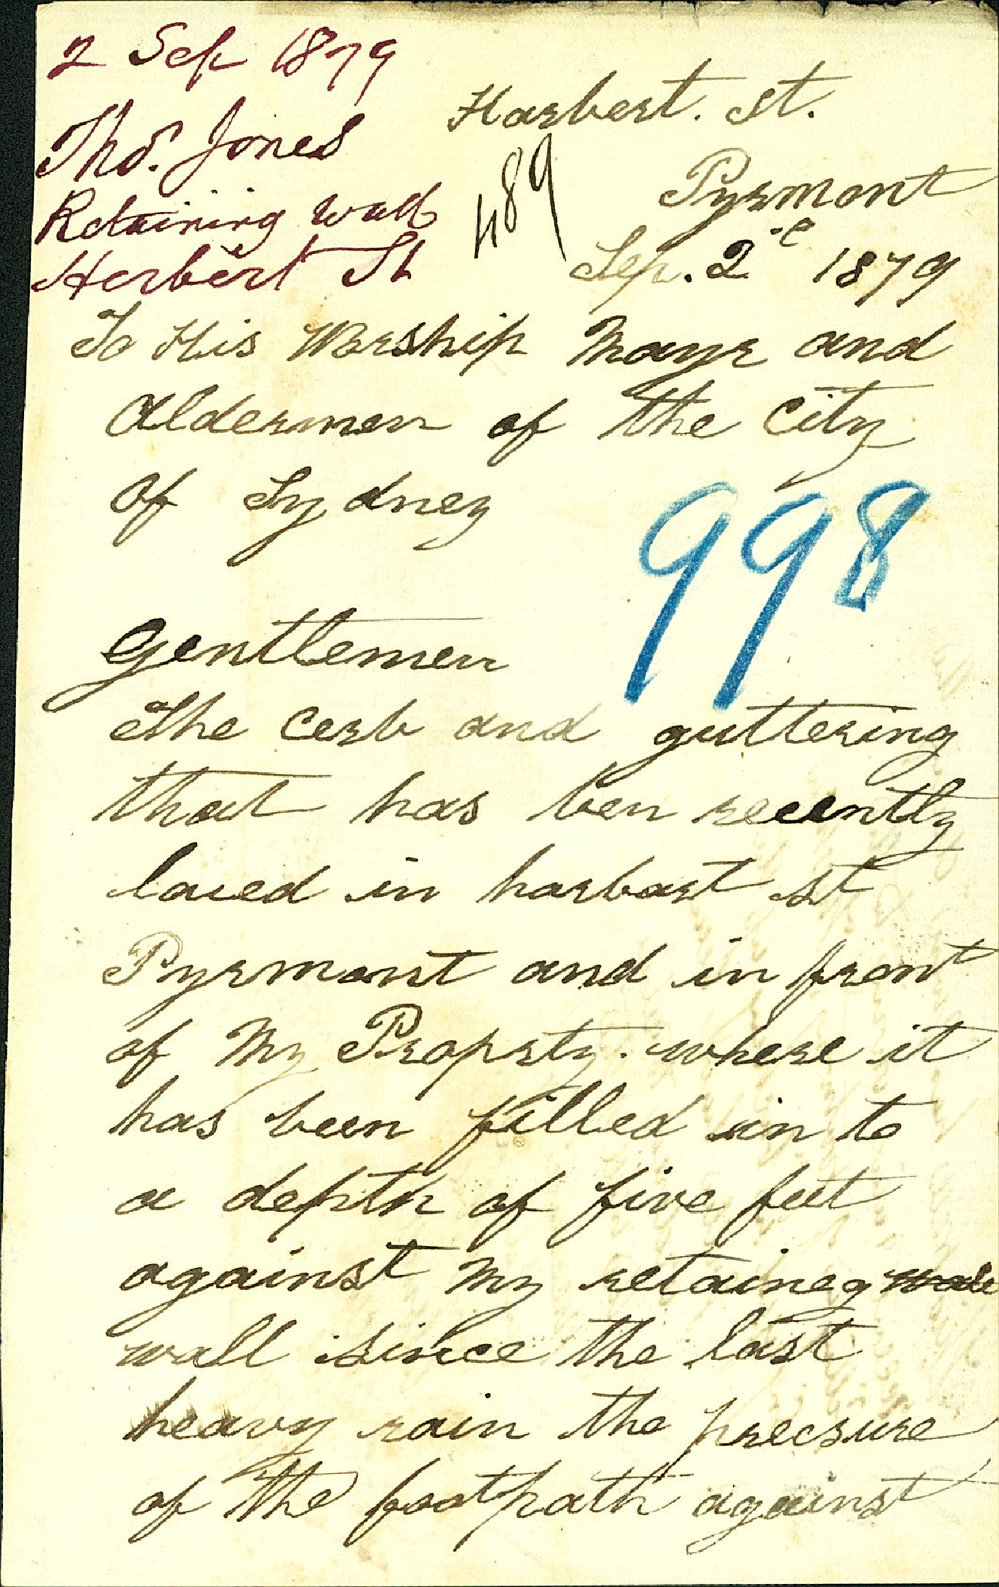 2 Sep 1879
Thos. Jones
Retaining wall
Herbert St
489
Harbert. St.
Pyrmont
Sep. 2 1879
To His Worship Mayr and
Aldermen of the City
of Sydney
998
Gentlemen
The Cerb and guttering
that has ben recently
laied in harbart st
Pyrmont and in front
of My Proprty. where it
has been filled in to
a depth of five feet
against my retaineg
wall since the last
heavy rain the precsure
of the footpath against